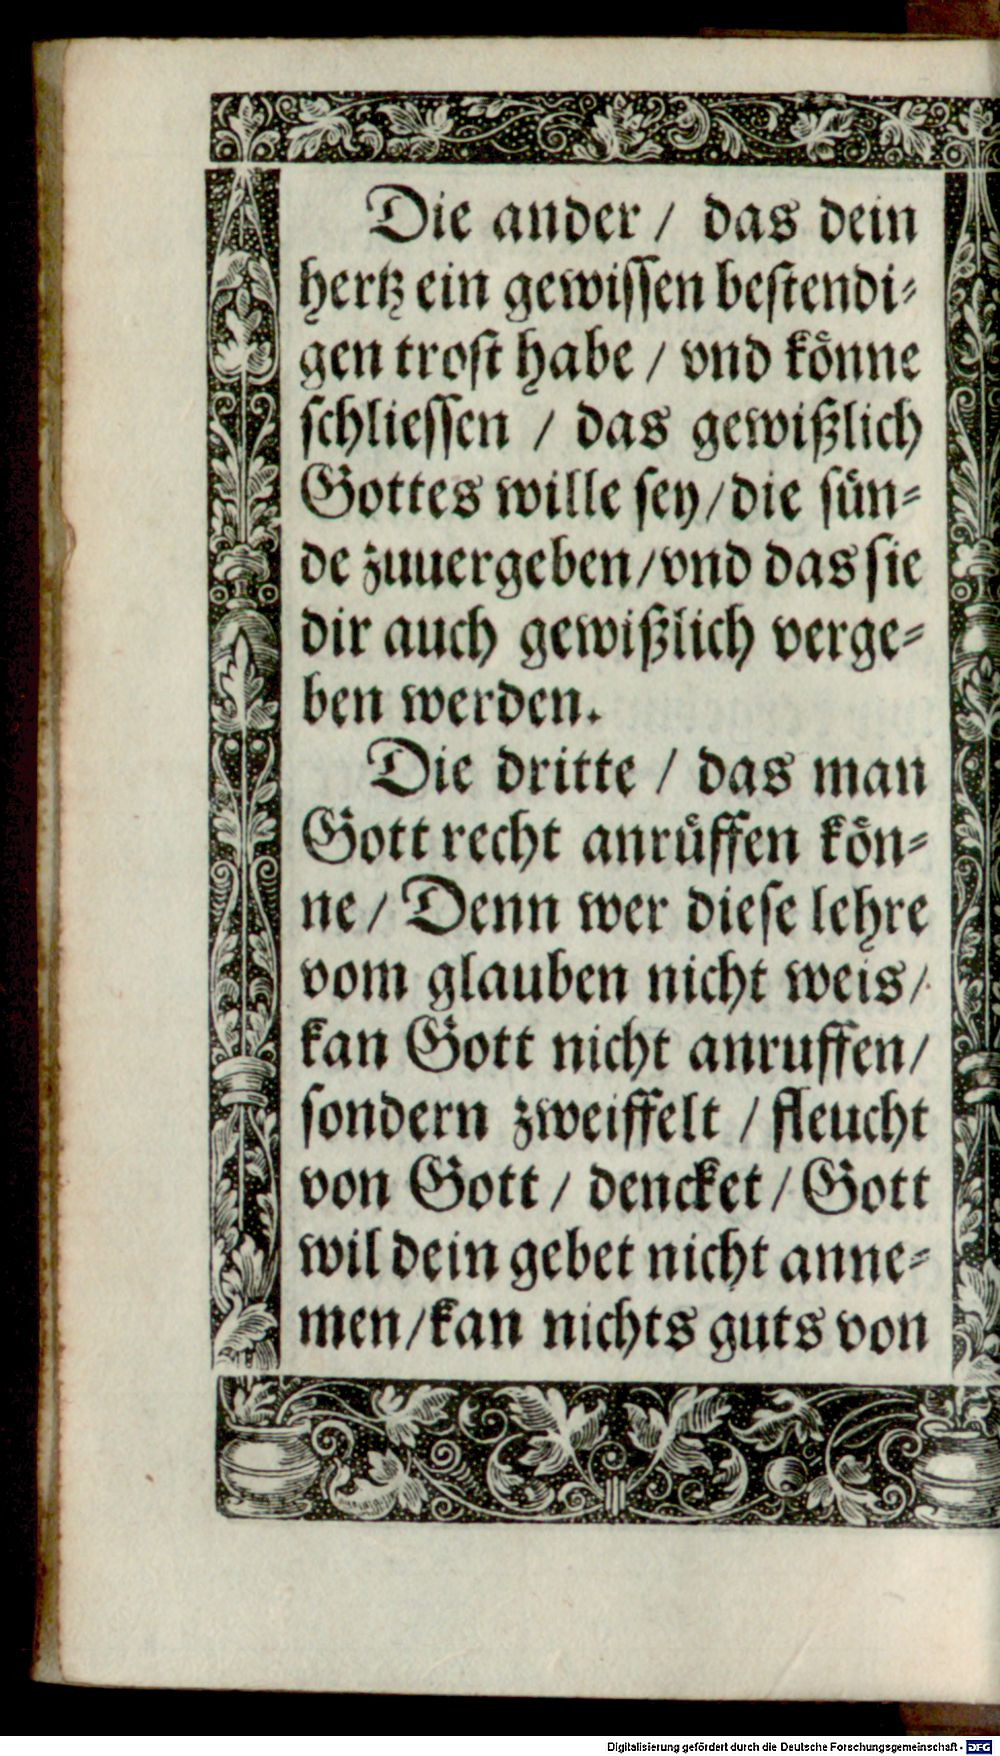 Die ander / das dein
hertz ein gewissen bestendi⸗
gen trost habe / vnd könne
schliessen / das gewißlich
Gottes wille sey/die sün⸗
de zuuergeben/vnd das sie
dir auch gewißlich verge⸗
ben werden.
Die dritte / das man
Gott recht anrüffen kön⸗
ne / Denn wer diese lehre
vom glauben nicht weis/
kan Gott nicht anruffen/
sondern zweiffelt / fleucht
von Gott / dencket / Gott
wil dein gebet nicht anne⸗
men/kan nichts guts von
Digitalisierung gefördert durch die Deutsche Forschungsgemeinschaft - DFG